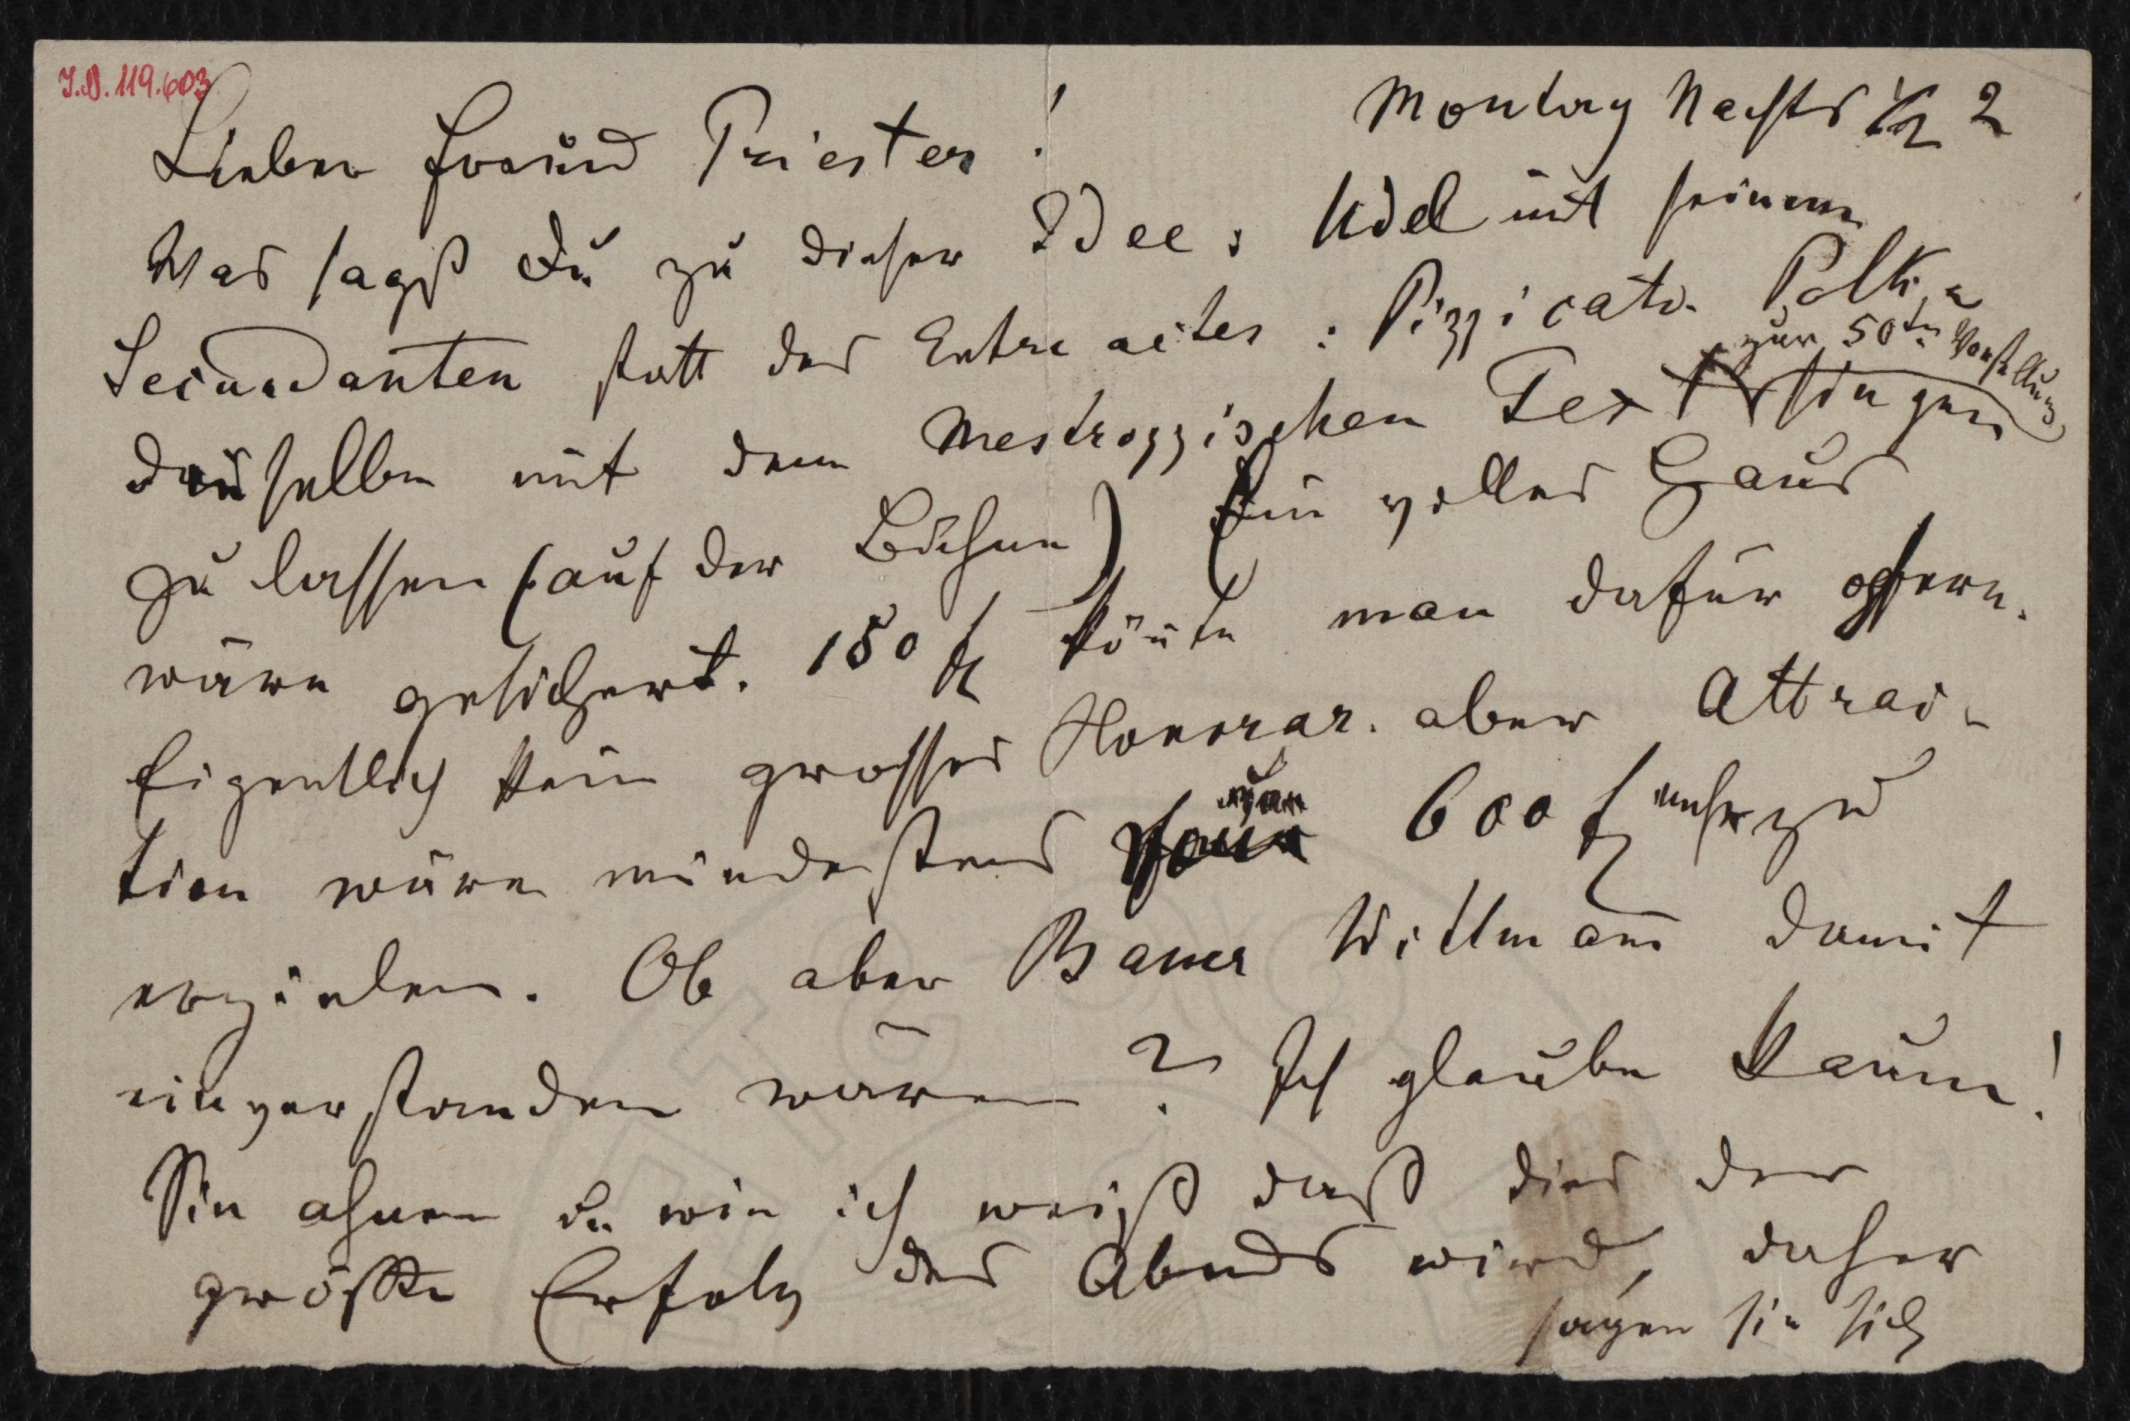 I.N. 119.603
Montag Nachts ½ 2
Lieber Freund Priester!
Was sagst Du zu dieser Idee: Udel mit seinen
Secundanten statt des Entre actes: Pizzicato-Polka
zur 50ten Vorstellung
dieselbe mit dem Mestrozzischen Text singen
zu lassen (auf der Bühne) Ein volles Haus
wäre gesichert. 150 fl könnte man dafür opfern.
Eigentlich kein grosses Honorar. aber Attrac-
tion wäre mindestens 600 fl mehr zu
erzielen. Ob aber Bauer Wittmann damit
einverstanden wären? Ich glaube kaum!
Sie ahnen da wie ich weiß daß dies der
größte Erfolg des Abends wird, daher
sagen sie sich